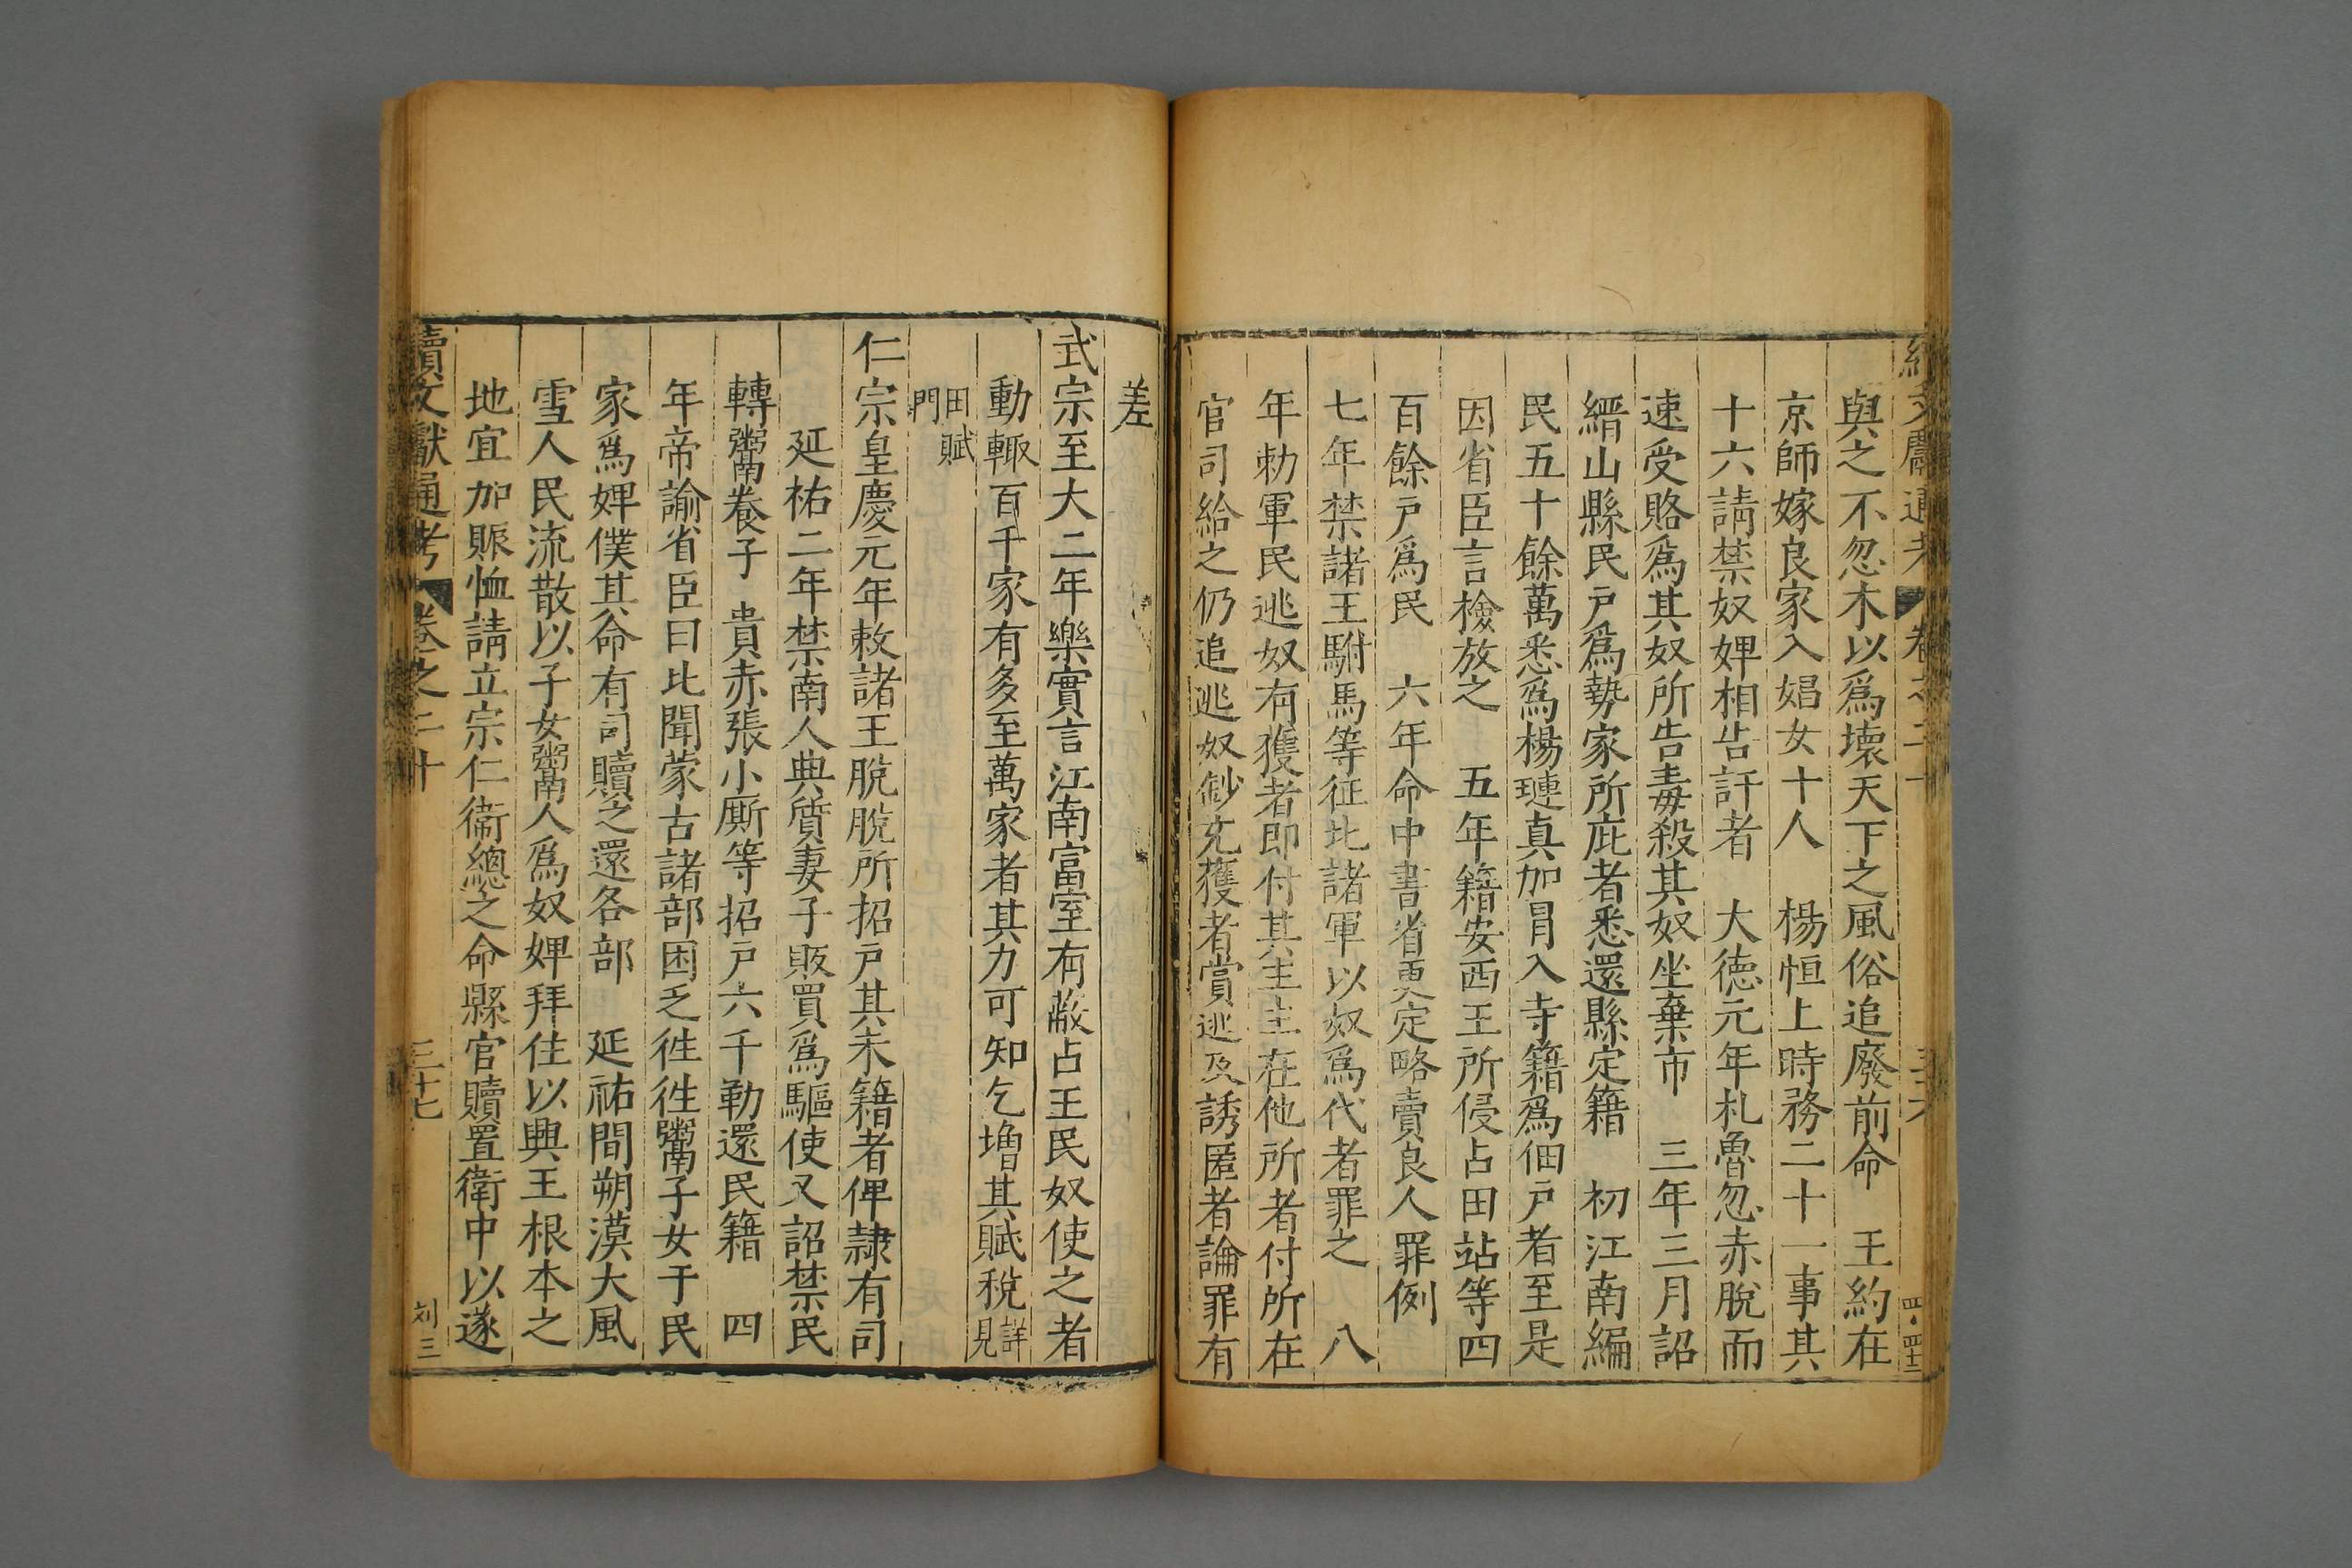 續文獻通考 卷之二十 三十六 四・四十三
與之不忽木以爲壞天下之風俗追廢前命 王約在
京師嫁良家入娼女十人 楊恒上時務二十一事其
十六請禁奴婢相告訐者 大德元年札魯忽赤脫而
速受賂爲其奴所告毒殺其奴坐棄市 三年三月詔
縉山縣民戶爲勢家所庇者悉還縣定籍 初江南編
民五十餘萬悉爲楊璉真加冒入寺籍爲佃戶者至是
因省臣言檢放之 五年籍安西王所侵占田站等四
百餘戶爲民 六年命中書省更定略賣良人罪例
七年禁諸王駙馬等征比諸軍以奴爲代者罪之 八
年勅軍民逃奴有獲者即付其主主在他所者付所在
官司給之仍追逃奴鈔充獲者賞逃及誘匿者論罪有
差
武宗至大二年樂實言江南富室有蔽占王民奴使之者
動輙百千家有多至萬家者其力可知乞增其賦稅詳見
田賦門
仁宗皇慶元年敕諸王脫脫所招戶其未籍者俾隸有司
延祐二年禁南人典質妻子販買爲驅使又詔禁民
轉鬻養子 貴赤張小厮等招戶六千勒還民籍 四
年帝諭省臣曰比聞蒙古諸部困乏徃徃鬻子女于民
家爲婢僕其命有司贖之還各部 延祐間朔漠大風
雪人民流散以子女鬻人爲奴婢拜住以興王根本之
地宜加賑恤請立宗仁衛總之命縣官贖置衛中以遂
續文獻通考 卷之二十 三十七 刘三